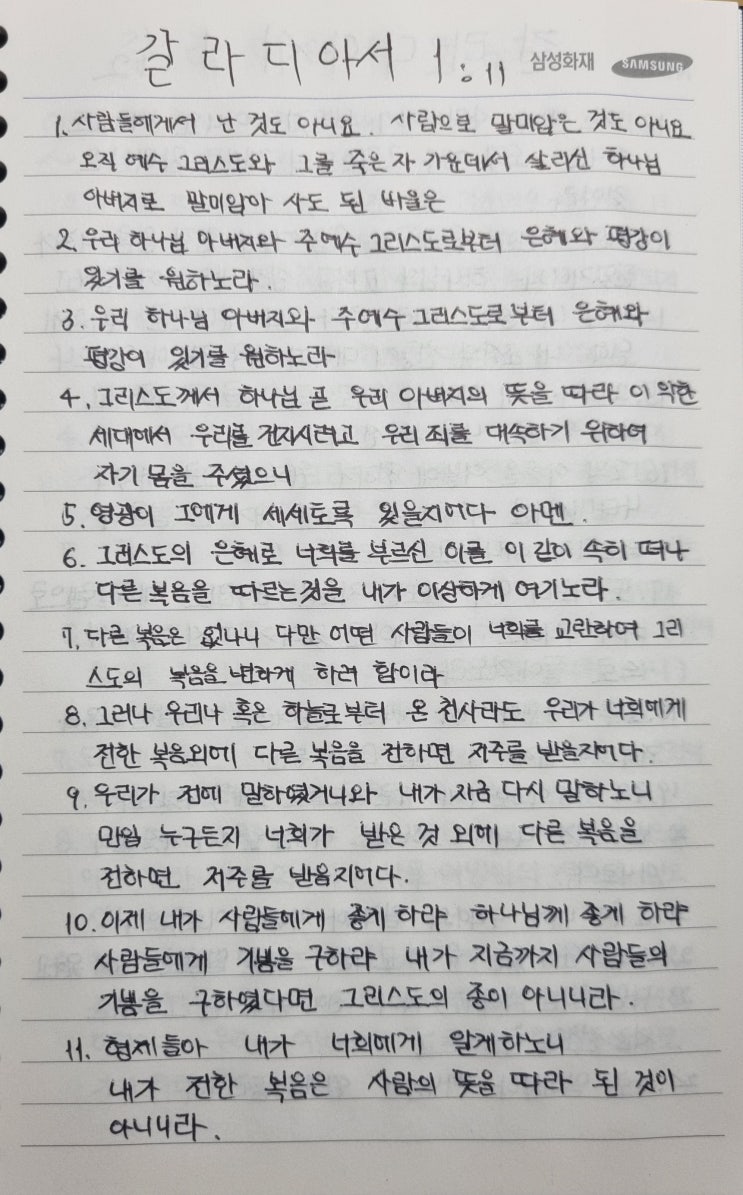 갈라디아서 1:11 삼성화재 SAMSUNG
1. 사람들에게서 난 것도 아니요. 사람으로 말미암은 것도 아니요
오직 예수 그리스도와 그를 죽은 자 가운데서 살리신 하나님
아버지로 말미암아 사도 된 바울은
2. 우리 하나님 아버지와 주 예수 그리스도로부터 은혜와 평강이
있기를 원하노라.
3. 우리 하나님 아버지와 주 예수 그리스도로부터 은혜와
평강이 있기를 원하노라
4. 그리스도께서 하나님 곧 우리 아버지의 뜻을 따라 이 악한
세대에서 우리를 건지시려고 우리 죄를 대속하기 위하여
자기 몸을 주셨으니
5. 영광이 그에게 세세토록 있을지어다 아멘.
6. 그리스도의 은혜로 너희를 부르신 이를 이 같이 속히 떠나
다른 복음을 따르는것을 내가 이상하게 여기노라.
7. 다른 복음은 없나니 다만 어떤 사람들이 너희를 교란하여 그리
스도의 복음을 변하게 하려 함이라
8. 그러나 우리나 혹은 하늘로부터 온 천사라도 우리가 너희에게
전한 복음외에 다른 복음을 전하면 저주를 받을지어다.
9. 우리가 전에 말하였거니와 내가 지금 다시 말하노니
만일 누구든지 너희가 받은 것 외에 다른 복음을
전하면 저주를 받을지어다.
10. 이제 내가 사람들에게 좋게 하랴 하나님께 좋게 하랴
사람들에게 기쁨을 구하랴 내가 지금까지 사람들의
기쁨을 구하였다면 그리스도의 종이 아니니라.
11. 형제들아 내가 너희에게 알게하노니
내가 전한 복음은 사람의 뜻을 따라 된 것이
아니니라.